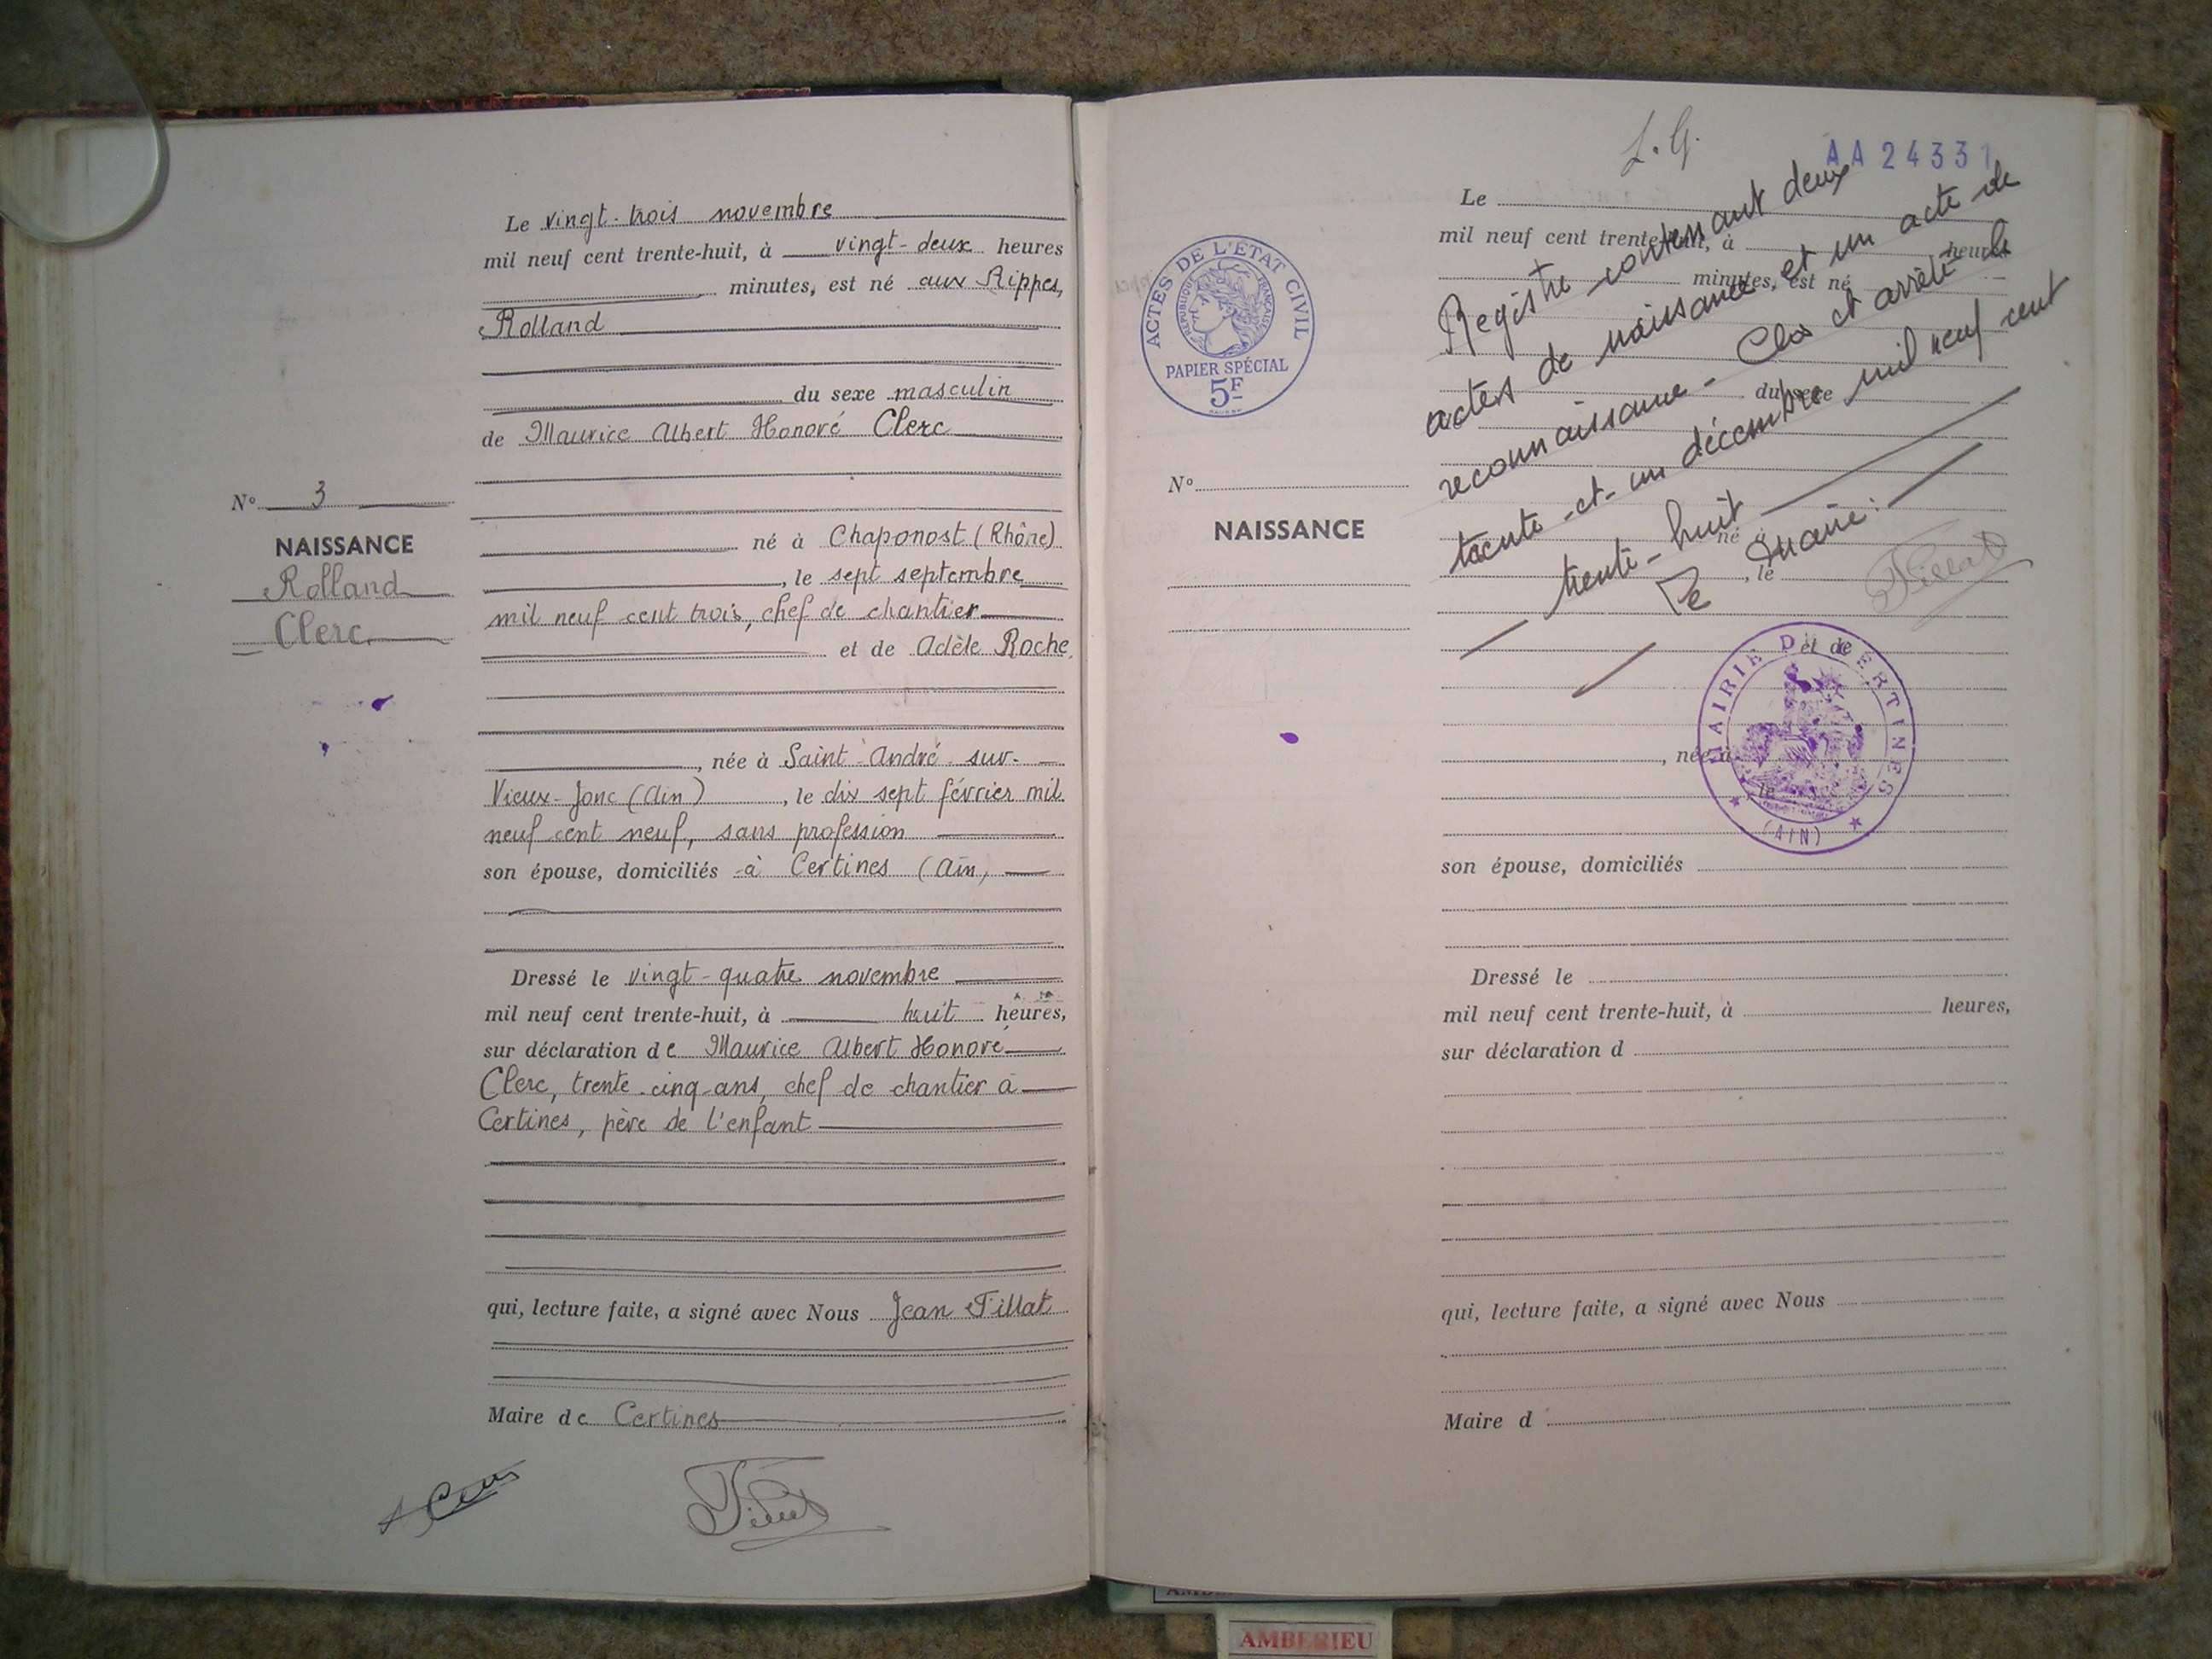 Le vingt-trois novembre
mil neuf cent trente-huit, à vingt-deux heures
minutes, est né aux Rippes,
Rolland
du sexe masculin
de Maurice Albert Honoré Clerc
N° 3
NAISSANCE
Rolland
Clerc
né à Chaponost (Rhône)
, le sept septembre
mil neuf cent trois, chef de chantier
et de Adèle Roche,
, née à Saint-André-sur-
Vieux-Jonc (Ain), le dix sept février mil
neuf cent neuf, sans profession
son épouse, domiciliés à Certines (Ain)
Dressé le vingt-quatre novembre
mil neuf cent trente-huit, à huit heures,
sur déclaration de Maurice Albert Honoré
Clerc, trente-cinq ans, chef de chantier à
Certines, père de l'enfant
qui, lecture faite, a signé avec Nous Jean Tillat
Maire de Certines
AA 24331
Le
mil neuf cent trente-huit, à heures
minutes, est né
du sexe
ACTES DE L'ÉTAT CIVIL
RÉPUBLIQUE FRANÇAISE
PAPIER SPÉCIAL
5F
Registre contenant deux
actes de naissance et un acte de
reconnaissance - Clos et arrêté le
trente-et-un décembre mil neuf cent
trente-huit
Le Maire:
Tillat
N°
NAISSANCE
né à
, le
et de
MAIRIE DE CERTINES
(AIN)
, née à
, le
son épouse, domiciliés
Dressé le
mil neuf cent trente-huit, à heures,
sur déclaration d
qui, lecture faite, a signé avec Nous
Maire d
AMBERIEU